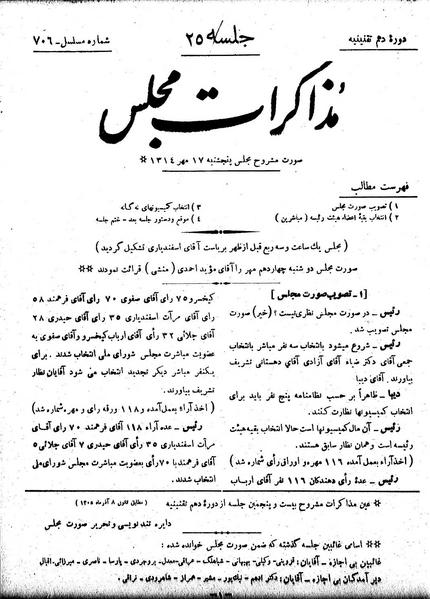 دورهٔ دهم تقنینیه
جلسه ۲۵
شماره مسلسل - ۷۰۶
مذاکرات مجلس
صورت مشروح مجلس پنجشنبه ۱۷ مهر ۱۳۱۴ *
فهرست مطالب
۱) تصویب صورت مجلس
۲) انتخاب بقیهٔ اعضاء هیئت رئیسه ( مباشرین )
۳) انتخاب کمیسیونهای ۷ گانه
۴) موقع و دستور جلسه بعد - ختم جلسه
( مجلس یک ساعت و سه ربع قبل از ظهر بریاست آقای اسفندیاری تشکیل گردید )
صورت مجلس دو شنبه چهاردهم مهر را آقای مؤید احمدی ( منشی ) قرائت نمودند **
[ ۱ - تصویب صورت مجلس ]
رئیس - در صورت مجلس نظری نیست ؟ ( خیر ) صورت
مجلس تصویب شد .
رئیس - شروع میشود بانتخاب سه نفر مباشر بانتخاب
جمعی آقای دکتر ضیاء آقای آزادی آقای دهستانی تشریف
بیاورند . آقای دیبا
دیبا - ظاهراً بر حسب نظامنامه پنج نفر باید برای
انتخاب کمیسیونها نظارت کنند .
رئیس - آن مال کمیسیونها است حالا انتخاب بقیه هیئت
رئیسه است و همان نظار سابق هستند .
( اخذ آراء بعمل آمده ۱۱۶ مهره و اوراق رأی شماره شد )
رئیس - عدهٔ رأی دهندگان ۱۱۶ نفر آقای ارباب
کیخسرو ۷۵ رأی آقای صفوی ۷۰ رأی آقای فرهمند ۵۸
رأی آقای مرآت اسفندیاری ۳۵ رأی آقای حیدری ۲۸
آقای جلائی ۳۲ رأی آقای ارباب کیخسرو و آقای صفوی به
عضویت مباشرت مجلس شورای ملی انتخاب شدند . برای
یکنفر مباشر دیگر تجدید انتخاب می شود آقایان نظار
تشریف بیاورند .
( اخذ آراء بعمل آمده و ۱۱۸ ورقه رأی و مهره شماره شد )
رئیس - عده آراء ۱۱۸ آقای فرهمند ۷۰ رأی آقای
مرآت اسفندیاری ۳۵ رأی آقای حیدری ۷ آقای جلائی ۵
آقای فرهمند با ۷۰ رأی بعضویت مباشرت مجلس شورای ملی
انتخاب شدند .
* عین مذاکرات مشروح بیست و پنجمین جلسه از دورهٔ دهم تقنینیه ( مطابق قانون ۸ آذر ماه ۱۳۰۵ )
دایره تند نویسی و تحریر صورت مجلس
** اسامی غائبین جلسه گذشته که ضمن صورت مجلس خوانده شده :
غائبین بی اجازه - آقایان : قزوینی - وکیلی - بهبهانی - شباهنک - عراقی - معدل - بروجردی - پارسا - ناصری - میرزائی - اقبال
دیر آمدگان بی اجازه - آقایان : دکتر ادهم - نیک پور - مشیر - همراز - شاهرودی - نراقی .